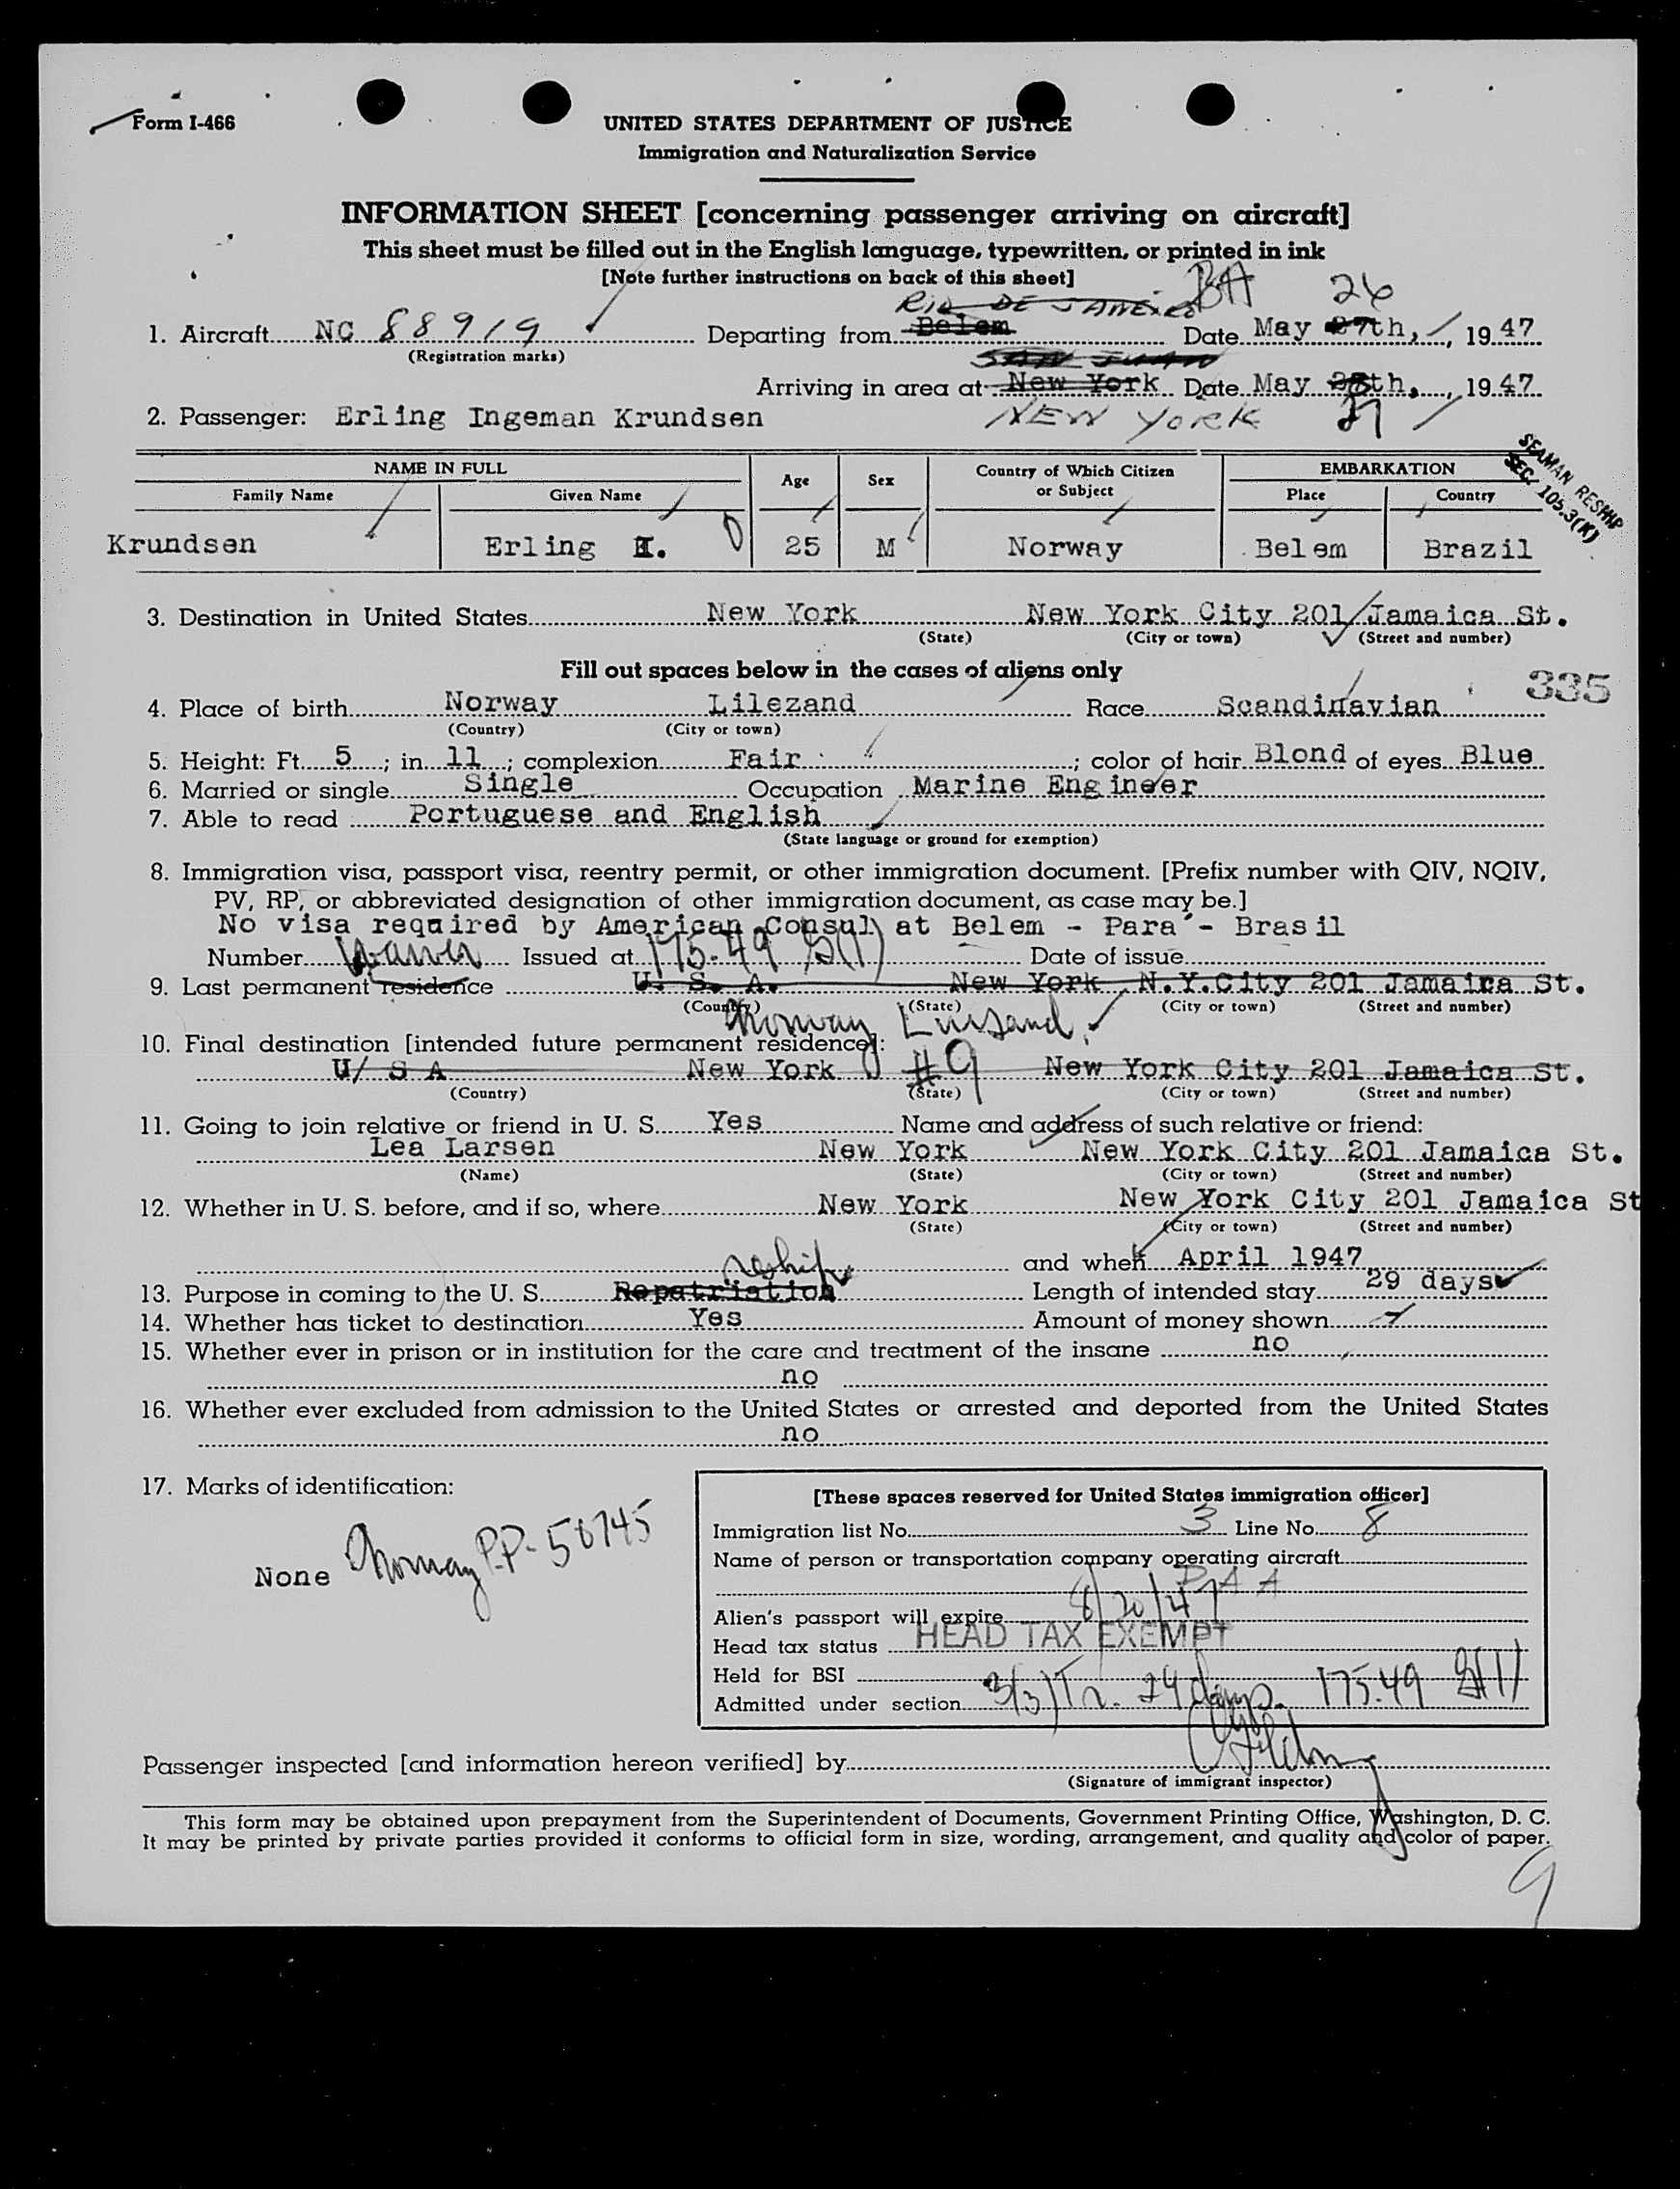 Form I-466
UNITED STATES DEPARTMENT OF JUSTICE
Immigration and Naturalization Service
INFORMATION SHEET [concerning passenger arriving on aircraft]
This sheet must be filled out in the English language, typewritten, or printed in ink
[Note further instructions on back of this sheet]
RIO DE JANEIRO BA 26
1. Aircraft NC 88919 Departing from Belem Date May 27th, 1947
(Registration marks)
SAN JUAN
Arriving in area at New York Date May 28th, 1947
2. Passenger: Erling Ingeman Krundsen NEW YORK 27
SEAMAN RESHIP
SEC. 105.3(K)
NAME IN FULL Age Sex Country of Which Citizen or Subject EMBARKATION
Family Name Given Name Place Country
Krundsen Erling I. 25 M Norway Belem Brazil
3. Destination in United States New York New York City 201 Jamaica St.
(State) (City or town) (Street and number)
Fill out spaces below in the cases of aliens only
335
4. Place of birth Norway Lilezand Race Scandinavian
(Country) (City or town)
5. Height: Ft. 5; in. 11; complexion Fair; color of hair Blond of eyes Blue
6. Married or single Single Occupation Marine Engineer
7. Able to read Portuguese and English
(State language or ground for exemption)
8. Immigration visa, passport visa, reentry permit, or other immigration document. [Prefix number with QIV, NQIV,
PV, RP, or abbreviated designation of other immigration document, as case may be.]
No visa required by American Consul at Belem - Para - Brasil
Number Issued at 175.49 Date of issue
9. Last permanent residence U. S. A. New York, N.Y.City 201 Jamaica St.
(Country) (State) (City or town) (Street and number)
Norway
10. Final destination [intended future permanent residence]:
U/ S A New York #9 New York City 201 Jamaica St.
(Country) (State) (City or town) (Street and number)
11. Going to join relative or friend in U. S. Yes Name and address of such relative or friend:
Lea Larsen New York New York City 201 Jamaica St.
(Name) (State) (City or town) (Street and number)
12. Whether in U. S. before, and if so, where New York New York City 201 Jamaica St
(State) (City or town) (Street and number)
reship and when April 1947
13. Purpose in coming to the U. S. Repatriation Length of intended stay 29 days
14. Whether has ticket to destination Yes Amount of money shown
15. Whether ever in prison or in institution for the care and treatment of the insane no
no
16. Whether ever excluded from admission to the United States or arrested and deported from the United States
no
17. Marks of identification:
None Norway P.P-
[These spaces reserved for United States immigration officer]
Immigration list No. 3 Line No. 8
Name of person or transportation company operating aircraft
PAA
Alien's passport will expire
Head tax status HEAD TAX EXEMPT
Held for BSI
Admitted under section 3(3) days. 175.49
Passenger inspected [and information hereon verified] by
(Signature of immigrant inspector)
This form may be obtained upon prepayment from the Superintendent of Documents, Government Printing Office, Washington, D. C.
It may be printed by private parties provided it conforms to official form in size, wording, arrangement, and quality and color of paper.
9